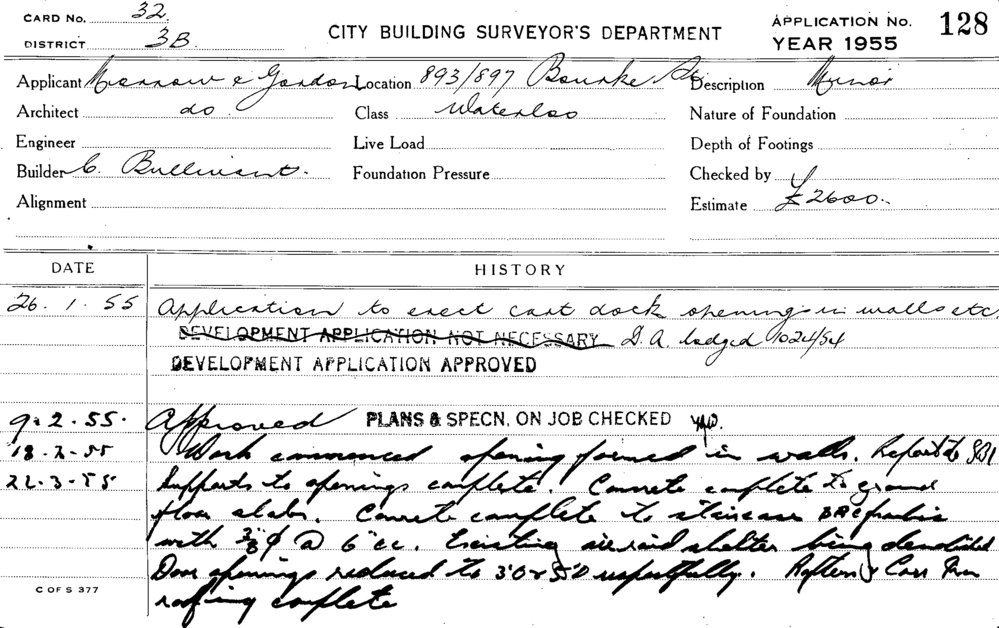 CARD No. 32.
DISTRICT 3B.
CITY BUILDING SURVEYOR'S DEPARTMENT
APPLICATION No. 128
YEAR 1955
Applicant Morrow & Gordon Location 893/897 Bourke St Description Minor
Architect do Class Waterloo Nature of Foundation
Engineer Live Load Depth of Footings
Builder C. Bullivant. Foundation Pressure Checked by
Alignment Estimate £2600.
DATE HISTORY
26. 1. 55 Application to erect cart dock openings in walls etc.
DEVELOPMENT APPLICATION NOT NECESSARY D.A lodged 1024/54
DEVELOPMENT APPLICATION APPROVED
9. 2. 55. Approved PLANS & SPECN. ON JOB CHECKED
18-2-55 Work commenced opening formed in walls. Report to
22-3-55 Supports to openings complete. Concrete complete to ground
floor slabs. Concrete complete to staircase
with 3/8"φ @ 6"cc. Existing air raid shelter being demolished
Door openings reduced to 3'0 & 5'0 respectfully. Rafters &
roofing complete
C OF S 377